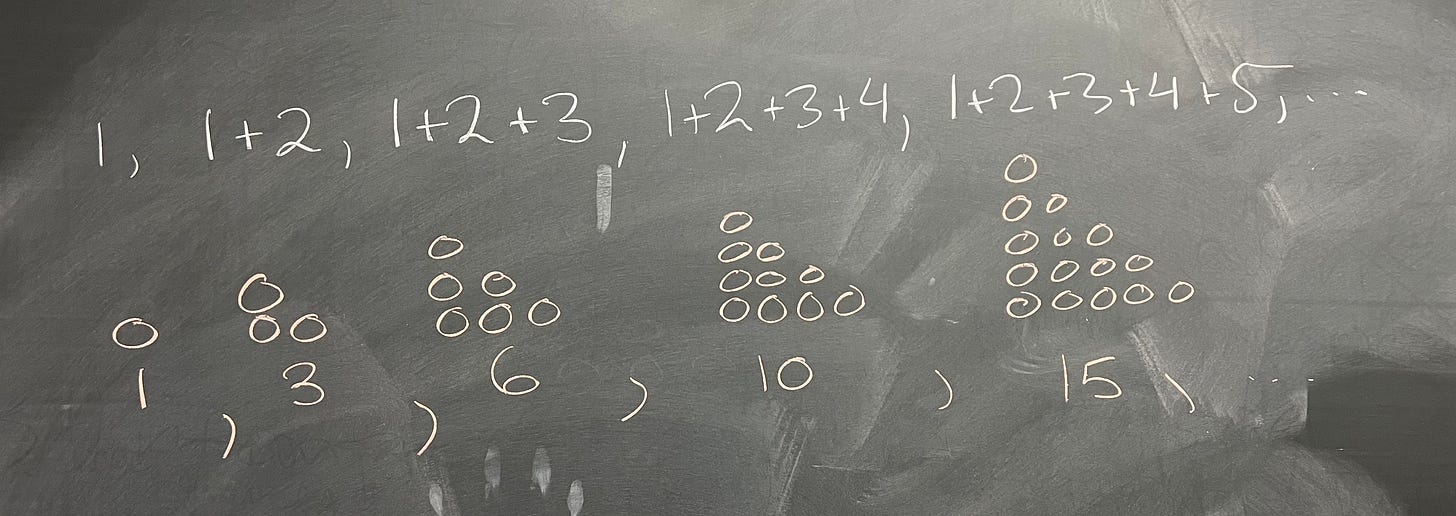 1, 1+2, 1+2+3, 1+2+3+4, 1+2+3+4+5, ...
1, 3, 6, 10, 15, ...